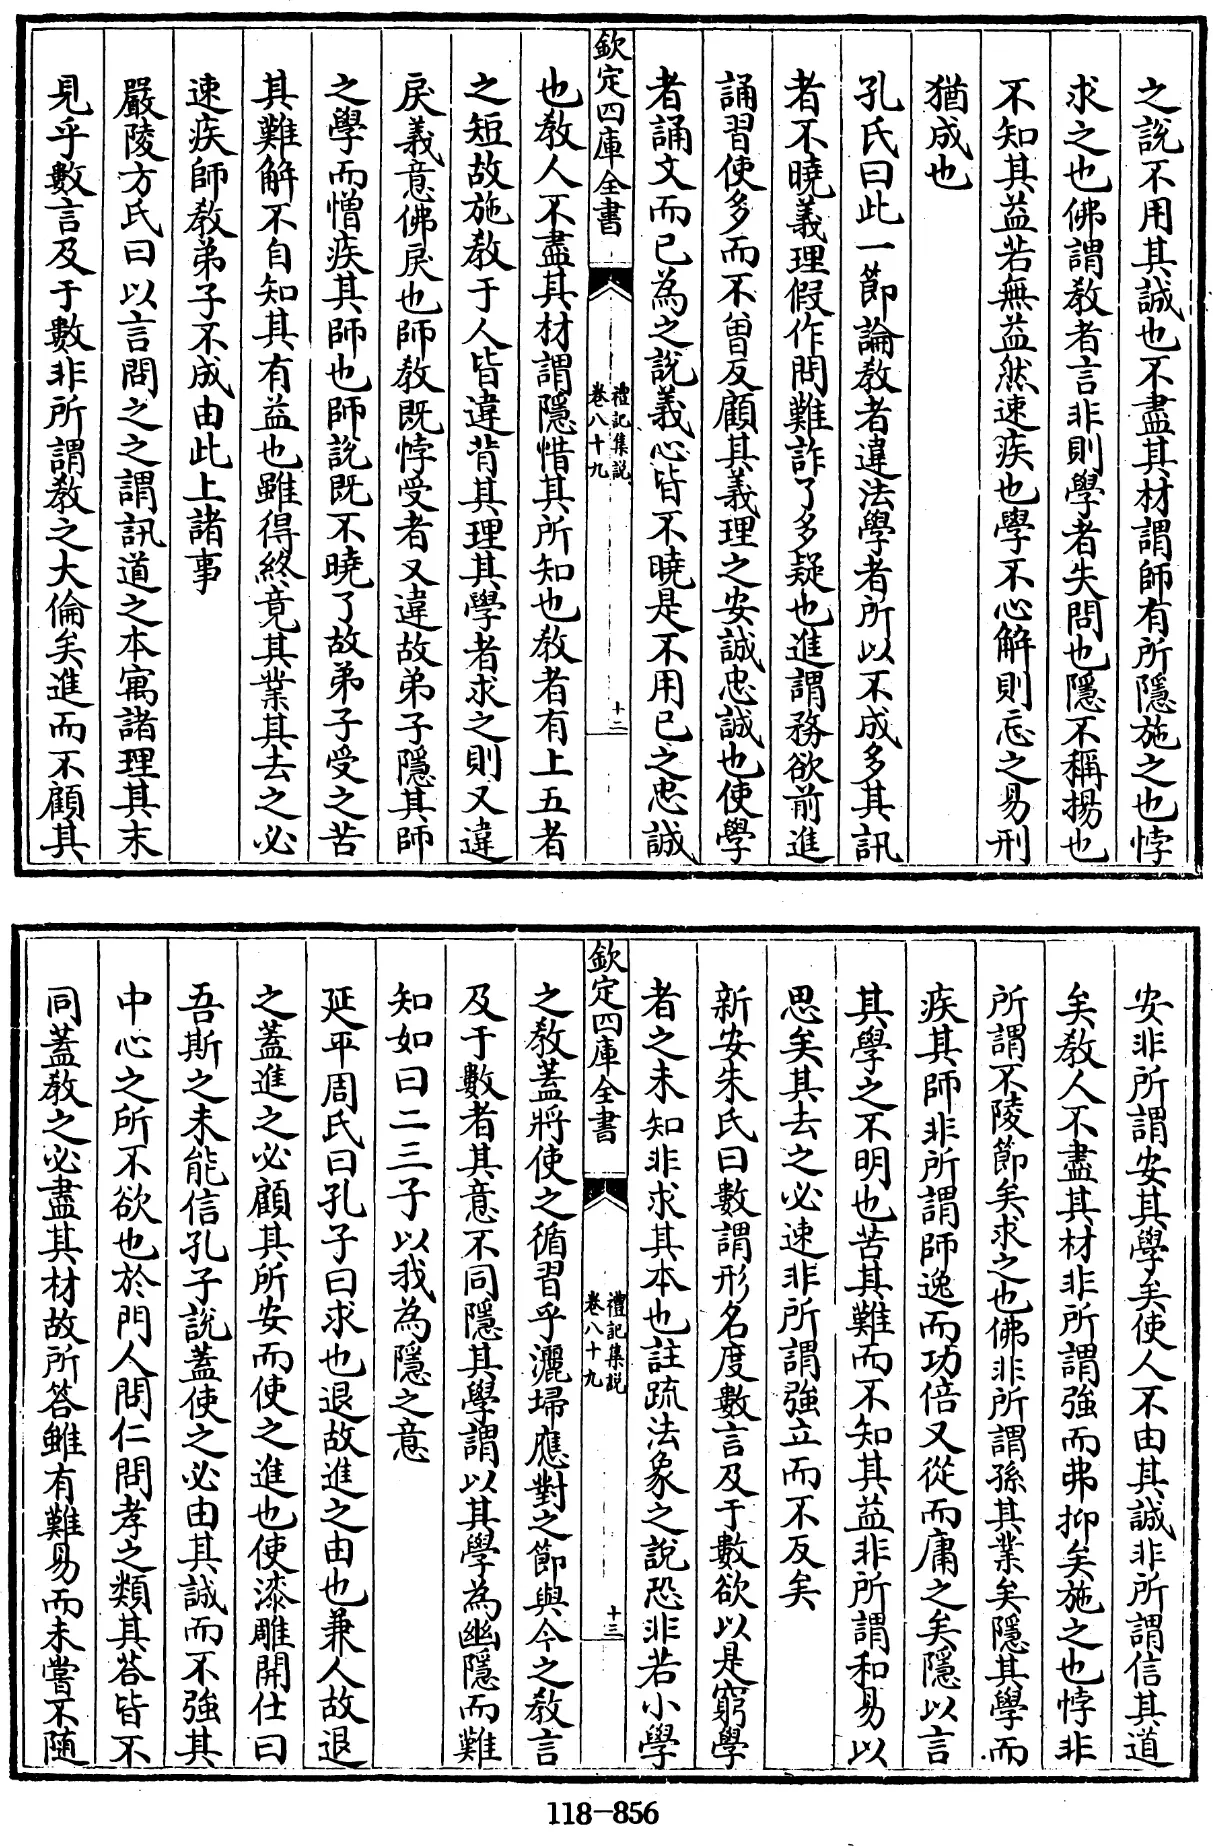 之說不用其誠也不盡其材謂師有所隱施之也悖
求之也佛謂教者言非則學者失問也隱不稱揚也
不知其益若無益然速疾也學不心解則忘之易刑
猶成也
孔氏曰此一節論教者違法學者所以不成多其訊
者不曉義理假作問難詐了多疑也進謂務欲前進
誦習使多而不曾反顧其義理之安誠忠誠也使學
者誦文而已為之說義心皆不曉是不用已之忠誠
欽定四庫全書
禮記集說
卷八十九
十二
也教人不盡其材謂隱惜其所知也教者有上五者
之短故施教于人皆違背其理其學者求之則又違
戾義意佛戾也師教既悖受者又違故弟子隱其師
之學而憎疾其師也師說既不曉了故弟子受之苦
其難解不自知其有益也雖得終竟其業其去之必
速疾師教弟子不成由此上諸事
嚴陵方氏曰以言問之之謂訊道之本寓諸理其末
見乎數言及于數非所謂教之大倫矣進而不顧其
安非所謂安其學矣使人不由其誠非所謂信其道
矣教人不盡其材非所謂強而弗抑矣施之也悖非
所謂不陵節矣求之也佛非所謂孫其業矣隱其學而
疾其師非所謂師逸而功倍又從而庸之矣隱以言
其學之不明也苦其難而不知其益非所謂和易以
思矣其去之必速非所謂強立而不反矣
新安朱氏曰數謂形名度數言及于數欲以是窮學
者之未知非求其本也註疏法象之說恐非若小學
欽定四庫全書
禮記集說
卷八十九
十三
之教蓋將使之循習乎灑埽應對之節與今之教言
及于數者其意不同隱其學謂以其學為幽隱而難
知如曰二三子以我為隱之意
延平周氏曰孔子曰求也退故進之由也兼人故退
之蓋進之必顧其所安而使之進也使漆雕開仕曰
吾斯之未能信孔子說蓋使之必由其誠而不強其
中心之所不欲也於門人問仁問孝之類其答皆不
同蓋教之必盡其材故所答雖有難易而未嘗不隨
118-856